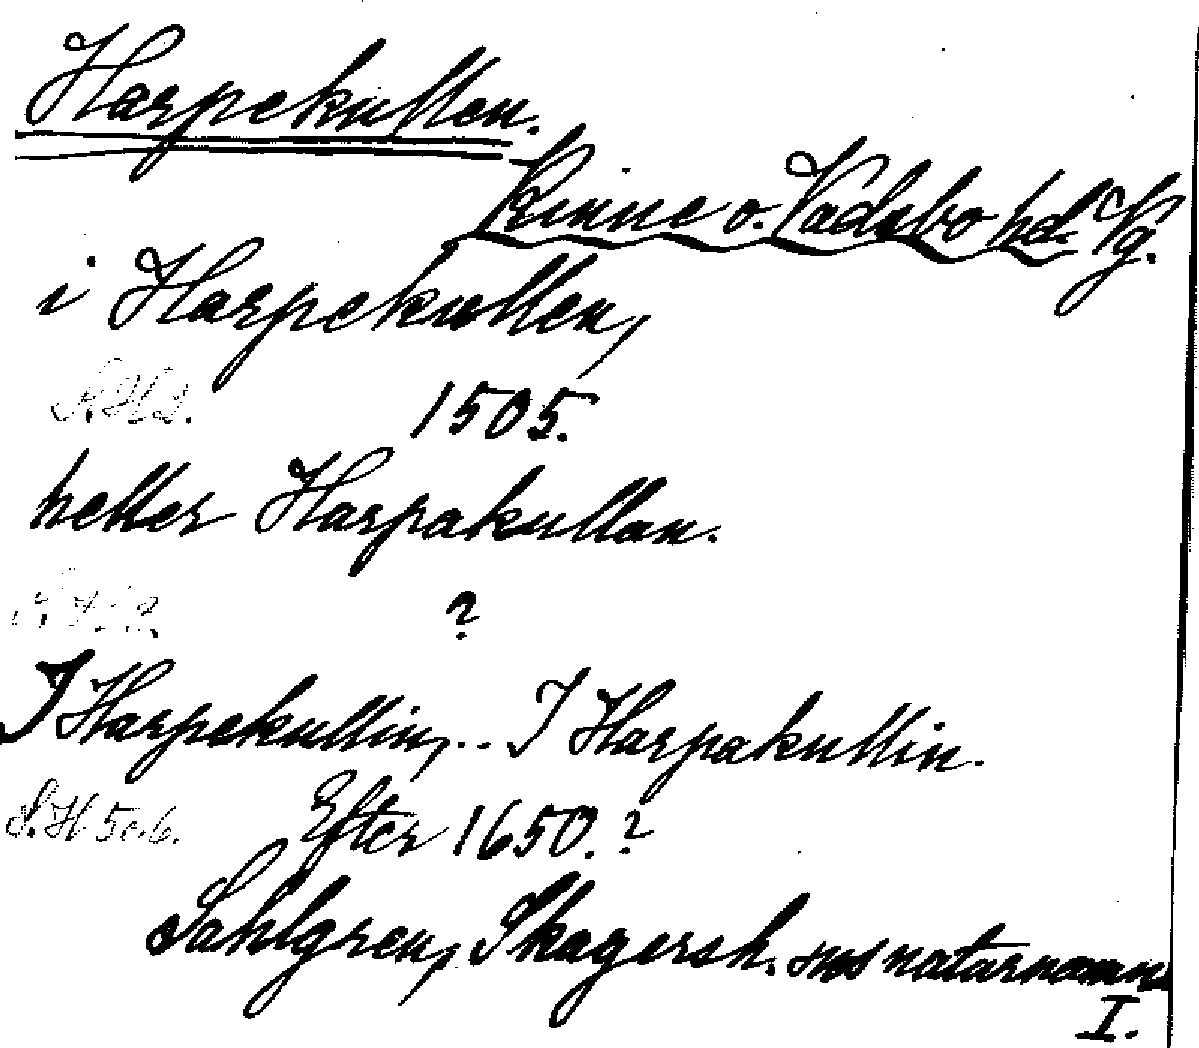 Harpekullen.
Kinne o. Vadsbo hd. Vg.
i Harpekullen,
S.H 2. 1505.
heller Harpakullan.
?
I Harpakullin, .. I Harpakullin.
S.H 5o.6. Efter 1650.?
Sahlgren, Skagersh.
naturnamn
I.